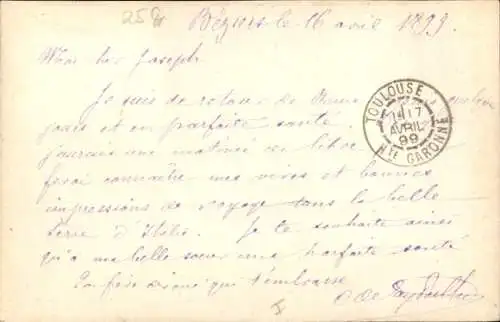 258
Béziers le 16 avril 1899
Mon bien Joseph
Je suis de retour de Rome
jours et en parfaite santé.
j'aurais une matinée de libre
ferai connaître mes vives et bonnes
impressions de voyage dans la belle
terre d'Italie. Je te souhaite ainsi
qu'à ma belle soeur une parfaite santé
qui t'embrasse
TOULOUSE
17
AVRIL
99
Hte GARONNE